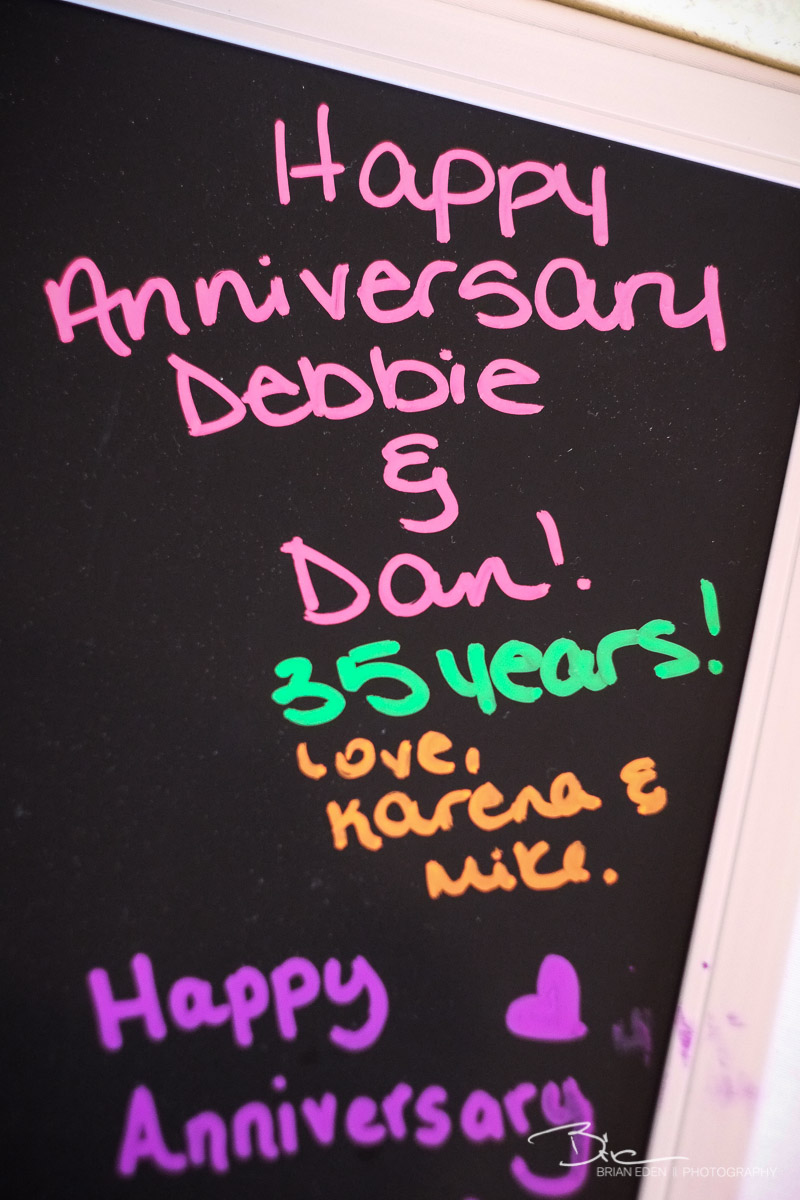 Happy
Anniversary
Debbie
&
Dan!
35 years!
Love,
Karena &
Mike.
Happy
Anniversary
BRIAN EDEN || PHOTOGRAPHY